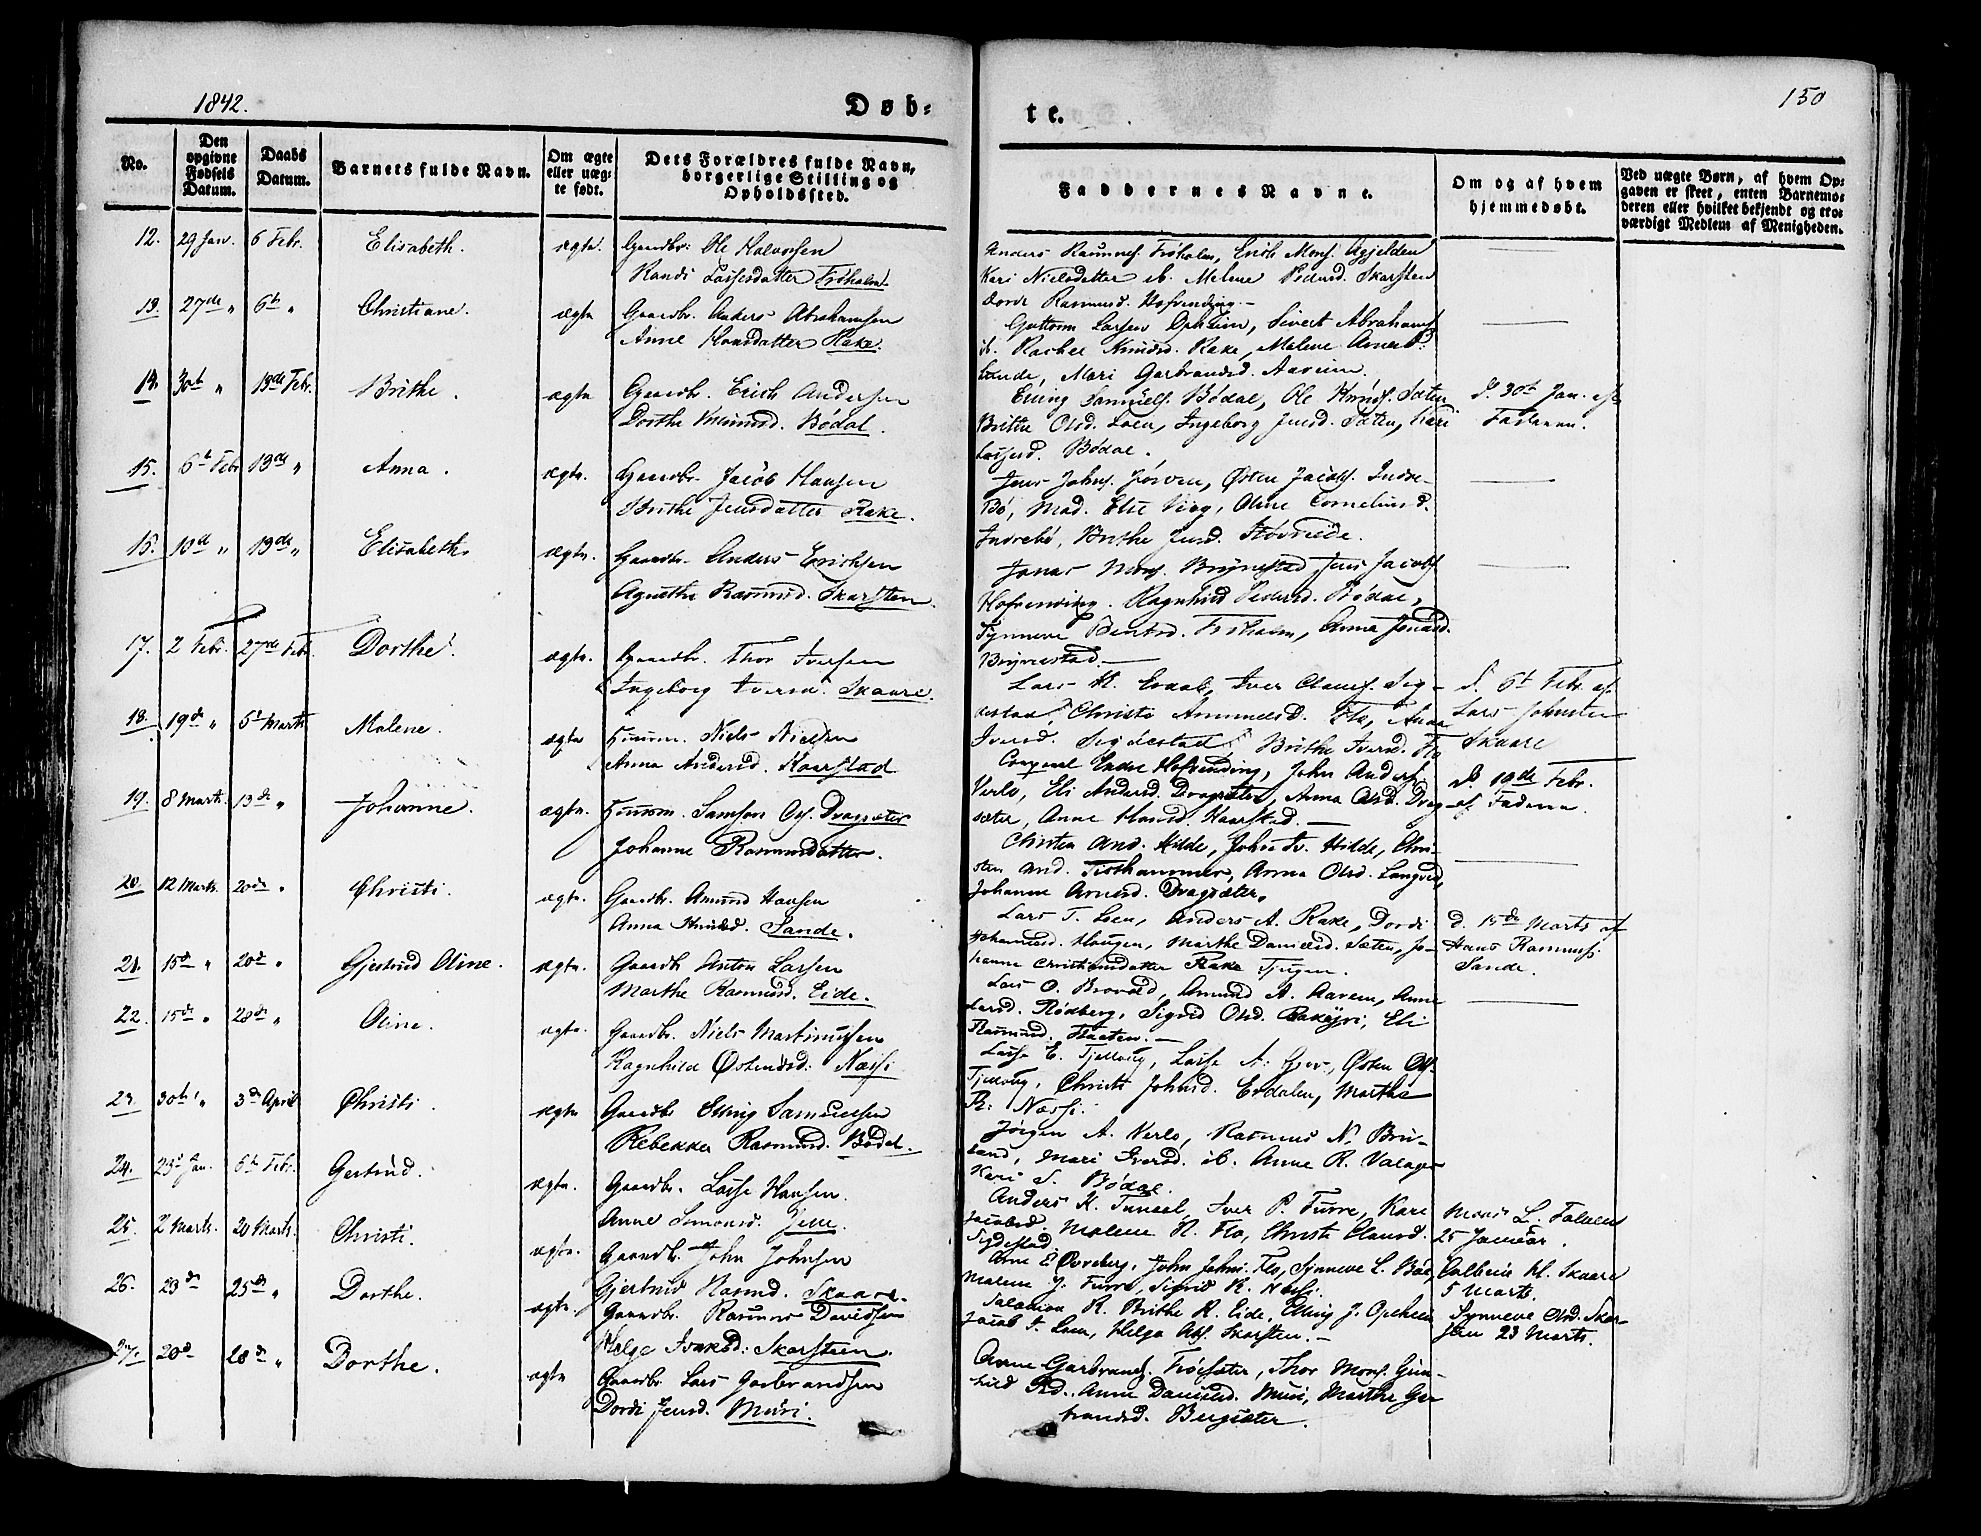 1842.
Døb-
te.
150
No.
Den opgivne Fødsels Datum.
Daabs Datum.
Barnets fulde Navn.
Om ægte eller uæg-te født.
Dets Forældres fulde Navn, borgerlige Stilling og Opholdssted.
Faddernes Navne.
Om og af hvem hjemmedøbt.
Ved uægte Børn, af hvem Op-gaven er skeet, enten Barnemo-deren eller hvilket bekjendt og tro-værdigt Medlem af Menigheden.
12. 29 Jan. 6 Febr. Elisabeth. ægte. Gaardbr. Ole Halvorsen
Randi Lassesdatter Frøholm.
Anders Rasmuss. Frøholm, Erich Mons.
Kari Nielsdatter ib. Malene Pedersd. Skarsten
Dorde Rasmusd. Hofrending.
13. 27de " 6te " Christiane. ægte Gaardbr. Anders Abrahamsen
Anne Hansdatter Rake.
Guttorm Larsen Opheim, Sivert Abrahams.
ib. Rachel Knudsd. Rake, Malene Arnesd.
Sande, Mari Garbrandsd. Aaveim.
13. 30te " 13de Febr. Brithe. ægte Gaardbr. Erich Andersen
Dorthe Rasmusd. Bødal.
Elling Samuels. Bødal, Ole Knuds. Sæten
Brithe Olsd. Loen, Ingeborg Jensd. Sæten, Kari
Lassesd. Bødal.
D. 30te Jan. af
Faderen.
15. 6te Febr 13de " Anna. ægte. Gaardbr. Jacob Hansen
Brithe Jensdatter Rake.
Jens Johns. Jørven, Østen Jacobs. Indre-
Bø, Mad. Else Viig, Oline Corneliusd.
Indrebø, Brithe Jensd.
15. 10de " 13de " Elisabeth. ægte. Gaardbr. Anders Erichsen
Agnethe Rasmusd. Skarsten.
Jonas Mons. Brynestad Jens Jacobs
Hofrending. Ragnhild Pedersd. Bødal,
Synneve Bentsd. Frøholm, Anna Jonasd.
Brynestad.
17. 2 Febr. 27de Febr. Dorthe. ægte. Gaardbr. Thor Iversen
Ingeborg Iversd. Skaare.
Lars H. Erdal, Iver Clauss. Sig-
destad, Christi Amundsd. Flo, Anna
Iversd. Sigdestad, Brithe Iversd. Flo
D. 6te Febr. af
Lars Johnsen
Skaare
18. 19de " 5te Marts Malene. ægte Huusm. Niels Nielsen
Anna Andersd. Kaarstad
Corporal Endre Hofrending, John Anders.
Verlo, Eli Andersd. Dragsæter, Anna Olsd. Drag-
sæter, Anne Hansd. Kaarstad.
D. 19de Febr.
af Faderen.
19. 8 Marts. 13de " Johanne. ægte. Huusm. Samson Dragsæter
Johanne Rasmusdatter.
Christen And. Hilde, John Iv. Hilde, Chri-
sten And. Tisthammer, Anna Olsd. Langvad,
Johanne Arnesd. Dragsæter.
20. 12 Marts. 20de " Christi. ægte. Gaardbr. Amund Hansen
Anna Knudsd. Sande.
Lars T. Loen, Anders A. Rake, Dordi
Johannesd. Haugen, Marthe Danielsd. Sæten, Jo-
hanne Christiansdatter Rake Tjugen.
D. 15de Marts af
Hans Rasmuss.
Sande.
21. 15de " 20de " Gjertrud Oline. ægte. Gaardb. Anton Larsen
Marthe Rasmusd. Eide.
Lars O. Brovold, Amund A. Aavem, Anne
Larsd. Rødberg, Sigrid Olsd. Eli
Rasmusd.
22. 15de " 28de " Oline. ægte. Gaardbr. Niels Martinussen
Ragnhild Østensd. Næssi
Lasse E. Tjellaug, Lasse A. Østen Ols.
Tjellaug, Christi Johnsd. Erdalen, Marthe
R. Næssi.
23. 30te " 3de April Christi. ægte Gaardbr. Elling Samuelsen
Rebekka Rasmusd. Bødal.
Jørgen A. Verlo, Rasmus N. Bru-
land, Mari Iversd. ib. Anne R.
Kari S. Bødal.
24. 25de Jan. 6te Febr. Gertrud. ægte. Gaardbr. Lasse Hansen.
Anne Simonsd.
Anders K. Tunold, Iver P. Furre, Kari
Jacobsd. Malene H. Flo, Christi Clausd.
Sigdestad.
L.
25 Januar.
25. 2 Marts. 20 Marts. Christi. ægte. Gaardbr. John Johnsen
Gjertrud Rasmd. Skaare.
Arne E. John Johns. Flo, Synneve L. Bøe,
Malene J. Furre, Sigrid R.
Skaare
5 Marts.
26. 23de 25de " Dorthe. ægte. Gaardbr. Rasmus Davidsen
Helge Skarsteen.
Salamon R. Brithe R. Eide, Elling J. Opheim
Jacob T. Loen, Helga Skarsten.
Synneve Olsd. Skar-
sten 23 Marts.
27. 20de 28de " Dorthe. ægte Gaardbr. Lars Garbrandsen
Dordi Jensd. Muri.
Arne Garbrands. Thor Mons. Gun-
hild Anne Danielsd. Muri, Marthe Gar-
brandsd. Bergsæter.